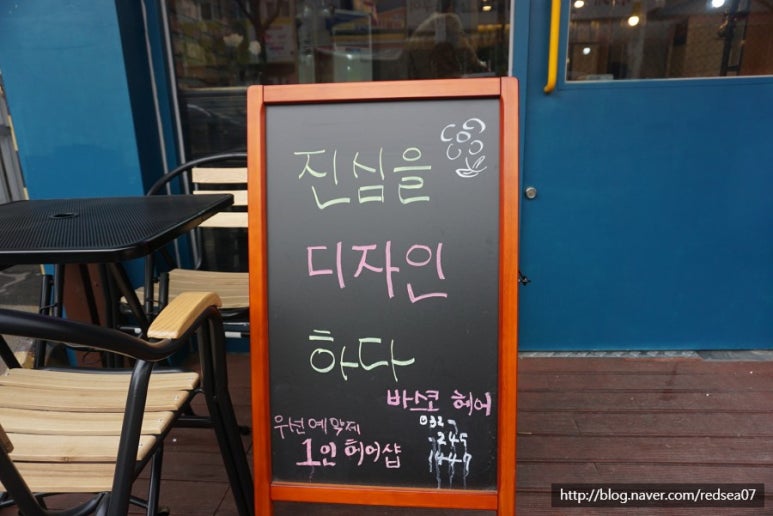 진심을
디자인
하다
바스코 헤어
우선예약제
1인 헤어샵
032
245
1447
http://blog.naver.com/redsea07